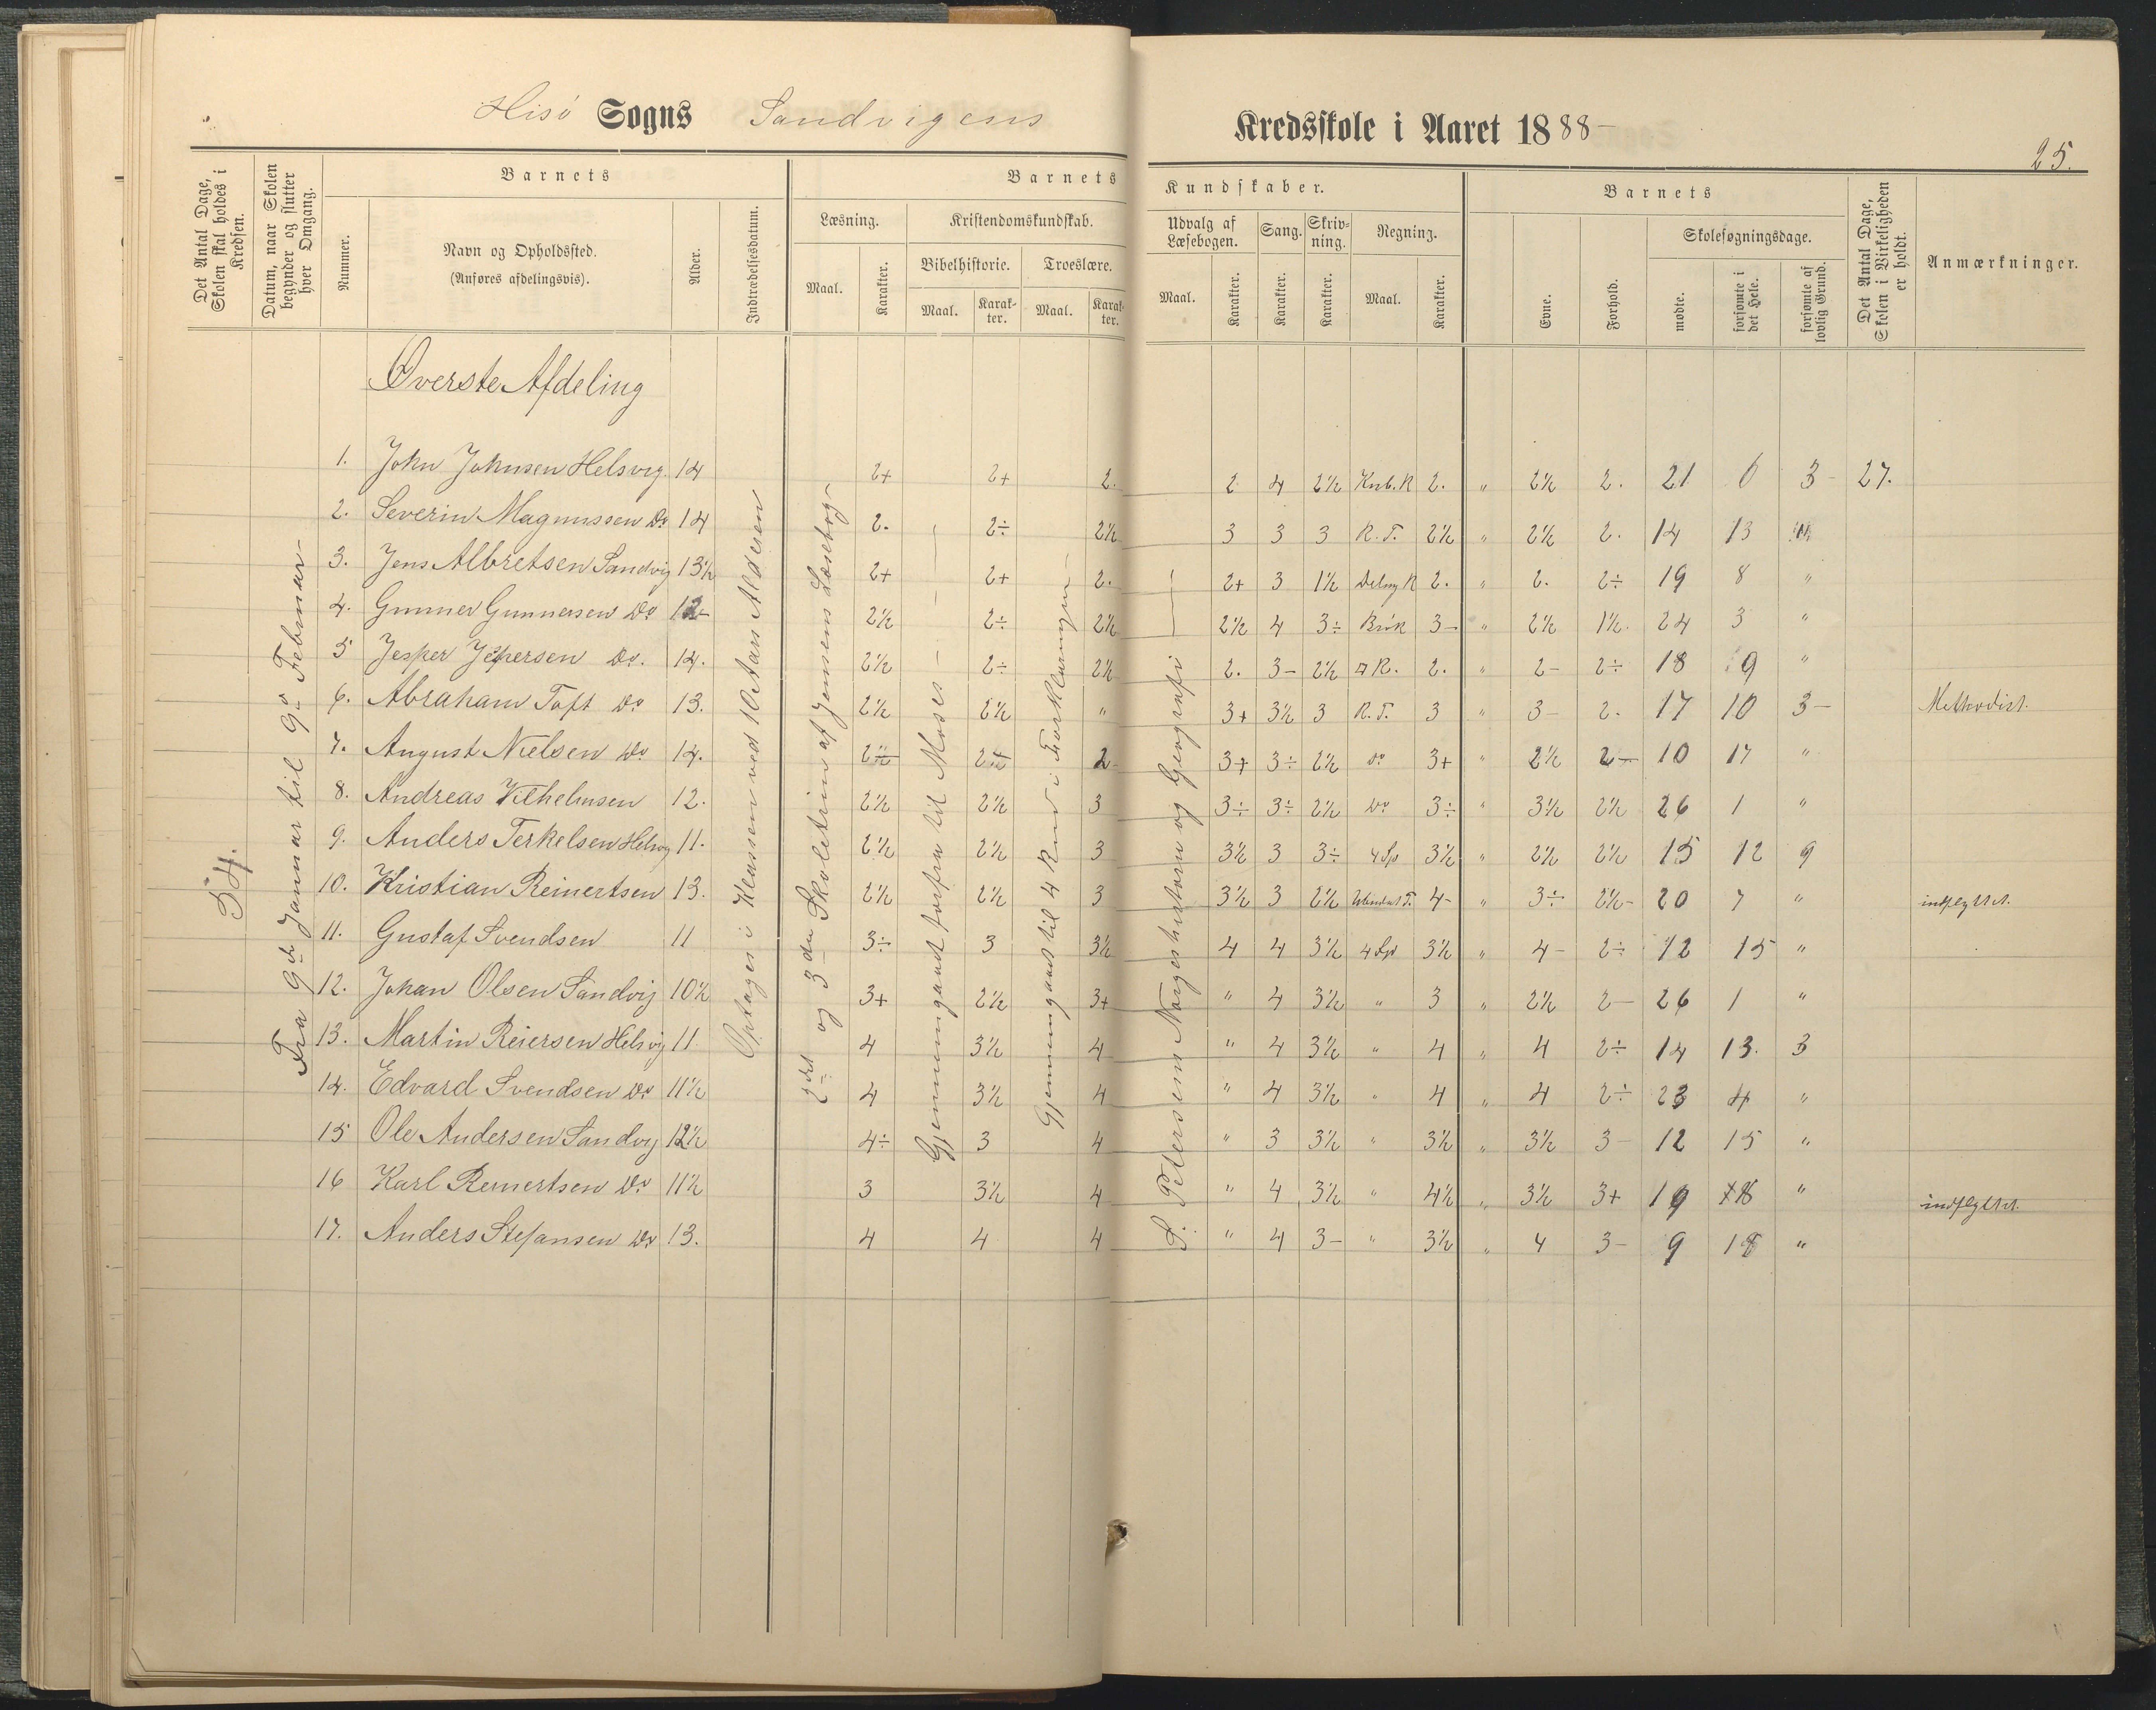 Hisø Sogns Sandvigens Kredsskole i Aaret 1888-
25.
Det Antal Dage, Skolen skal holdes i Kredsen.
Datum, naar Skolen begynder og slutter hver Omgang.
Barnets
Nummer.
Navn og Opholdssted.
(Anføres afdelingsvis).
Alder.
Indtrædelsesdatum.
Barnets Kundskaber.
Læsning.
Maal.
Karakter.
Kristendomskundskab.
Bibelhistorie.
Maal.
Karakter.
Troeslære.
Maal.
Karakter.
Udvalg af Læsebogen.
Maal.
Karakter.
Sang.
Karakter.
Skrivning.
Karakter.
Regning.
Maal.
Karakter.
Barnets
Evne.
Forhold.
Skolesøgningsdage.
mødte.
forsømte i det Hele.
forsømte af lovlig Grund.
Det Antal Dage, Skolen i Virkeligheden er holdt.
Anmærkninger.
54.
Fra 9de Januar til 9de Februar-
Optages i Klassen ved 10 Aars Alderen
2det og 3die Skoletrin af Jensens Læsebog-
Gjennemgaaet forfra til Moses-
Gjennemgaaet til 4 Bud i Forklaringen-
S. Petersens Norgeshistorie og Geografi
Øverste Afdeling
1. John Johnsen Helsvig. 14 2+ 2+ 2. 2 4 2½ 2. " 2½ 2. 21 6 3- 27.
2. Severin Magnussen Do 14 2. 2÷ 2½ 3 3 3 R.T. 2½ " 2½ 2. 14 13
3. Jens Albretsen Sandvig 13½ 2+ 2+ 2. 2+ 3 1½ 2. " 2. 2÷ 19 8 "
4. Gunner Gunnersen Do 12- 2½ 2÷ 2½ 2½ 4 3÷ Brøk 3- " 2½ 1½. 24 3 "
5 Jesper Jespersen Do. 14. 2½ 2÷ 2½ 2. 3- 2½ R. 2. " 2- 2÷ 18 9 "
6. Abraham Toft Do 13. 2½ 2½ " 3+ 3½ 3 R.T. 3 " 3- 2. 17 10 3- Methodist.
7. August Nielsen Do 14. 2½ 2½ 2- 3+ 3÷ 2½ do 3+ " 2½ 2- 10 17 "
8. Andreas Vilhelmsen 12. 2½ 2½ 3 3÷ 3÷ 2½ Do 3÷ " 3½ 2½ 26 1 "
9. Anders Terkelsen Helsvig 11. 2½ 2½ 3 3½ 3 3÷ 4 Sp 3½ " 2½ 2½ 15 12 9
10. Kristian Reinertsen 13. 2½ 2½ 3 3½ 3 2½ 4- " 3÷ 2½- 20 7 " indflyttet.
11. Gustaf Svendsen 11 3÷ 3 3½ 4 4 3½ 4 Sp 3½ " 4- 2÷ 12 15 "
12. Johan Olsen Sandvig 10½ 3+ 2½ 3+ " 4 3½ " 3 " 2½ 2- 26 1 "
13. Martin Reiersen Helsvig 11 4 3½ 4 " 4 3½ " 4 " 4 2÷ 14 13. 3
14. Edvard Svendsen Do 11½ 4 3½ 4 " 4 3½ " 4 " 4 2÷ 23 4 "
15 Ole Andersen Sandvig 12½ 4÷ 3 4 " 3 3½ " 3½ " 3½ 3- 12 15 "
16 Karl Reinertsen Do 11½ 3 3½ 4 " 4 3½ " 4½ " 3½ 3+ 19 8 " indflyttet.
17. Anders Stefansen Do 13. 4 4 4 " 4 3- " 3½ " 4 3- 9 18 "